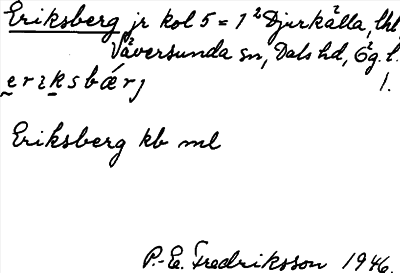 Eriksberg jr kol 5 = 1 Djurkälla, lht
Väversunda sn, Dals hd, Ög. l.
eriksbærj 1.
Eriksberg kb ml
P.-E. Fredriksson 1946.